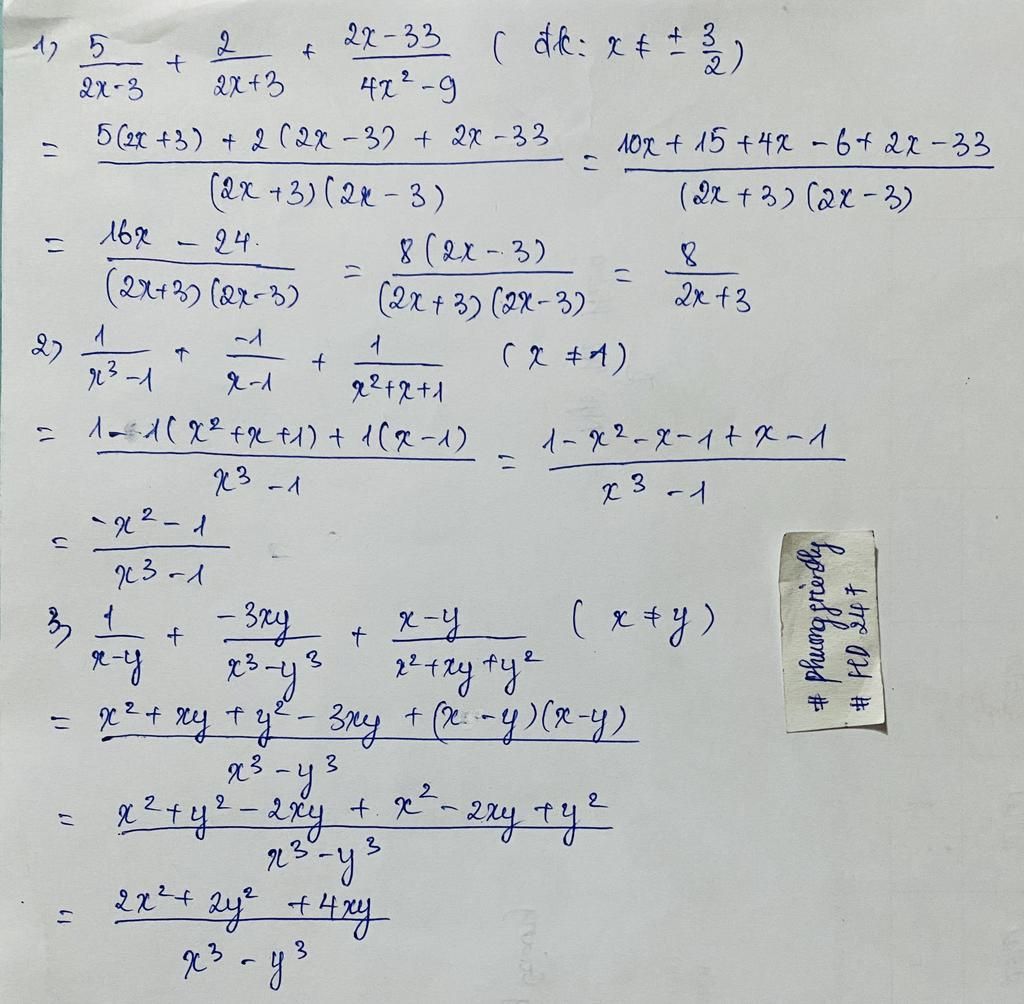 1) 5/(2x-3) + 2/(2x+3) + (2x-33)/(4x²-9) ( đk: x ≠ ± 3/2 )
= (5(2x+3) + 2(2x-3) + 2x-33)/((2x+3)(2x-3)) = (10x+15+4x-6+2x-33)/((2x+3)(2x-3))
= (16x - 24)/((2x+3)(2x-3)) = (8(2x-3))/((2x+3)(2x-3)) = 8/(2x+3)
2) 1/(x³-1) + (-1)/(x-1) + 1/(x²+x+1) ( x ≠ 1 )
= (1-1(x²+x+1)+1(x-1))/(x³-1) = (1-x²-x-1+x-1)/(x³-1)
= (-x²-1)/(x³-1)
3) 1/(x-y) + (-3xy)/(x³-y³) + (x-y)/(x²+xy+y²) ( x ≠ y )
= (x²+xy+y²-3xy+(x-y)(x-y))/(x³-y³)
= (x²+y²-2xy+x²-2xy+y²)/(x³-y³)
= (2x²+2y²+4xy)/(x³-y³)
# phuongfriendly
# HD 247